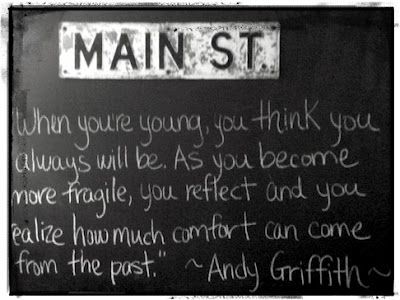 MAIN ST.
When you're young, you think you
always will be. As you become
more fragile, you reflect and you
ealize how much comfort can come
from the past." ~Andy Griffith~